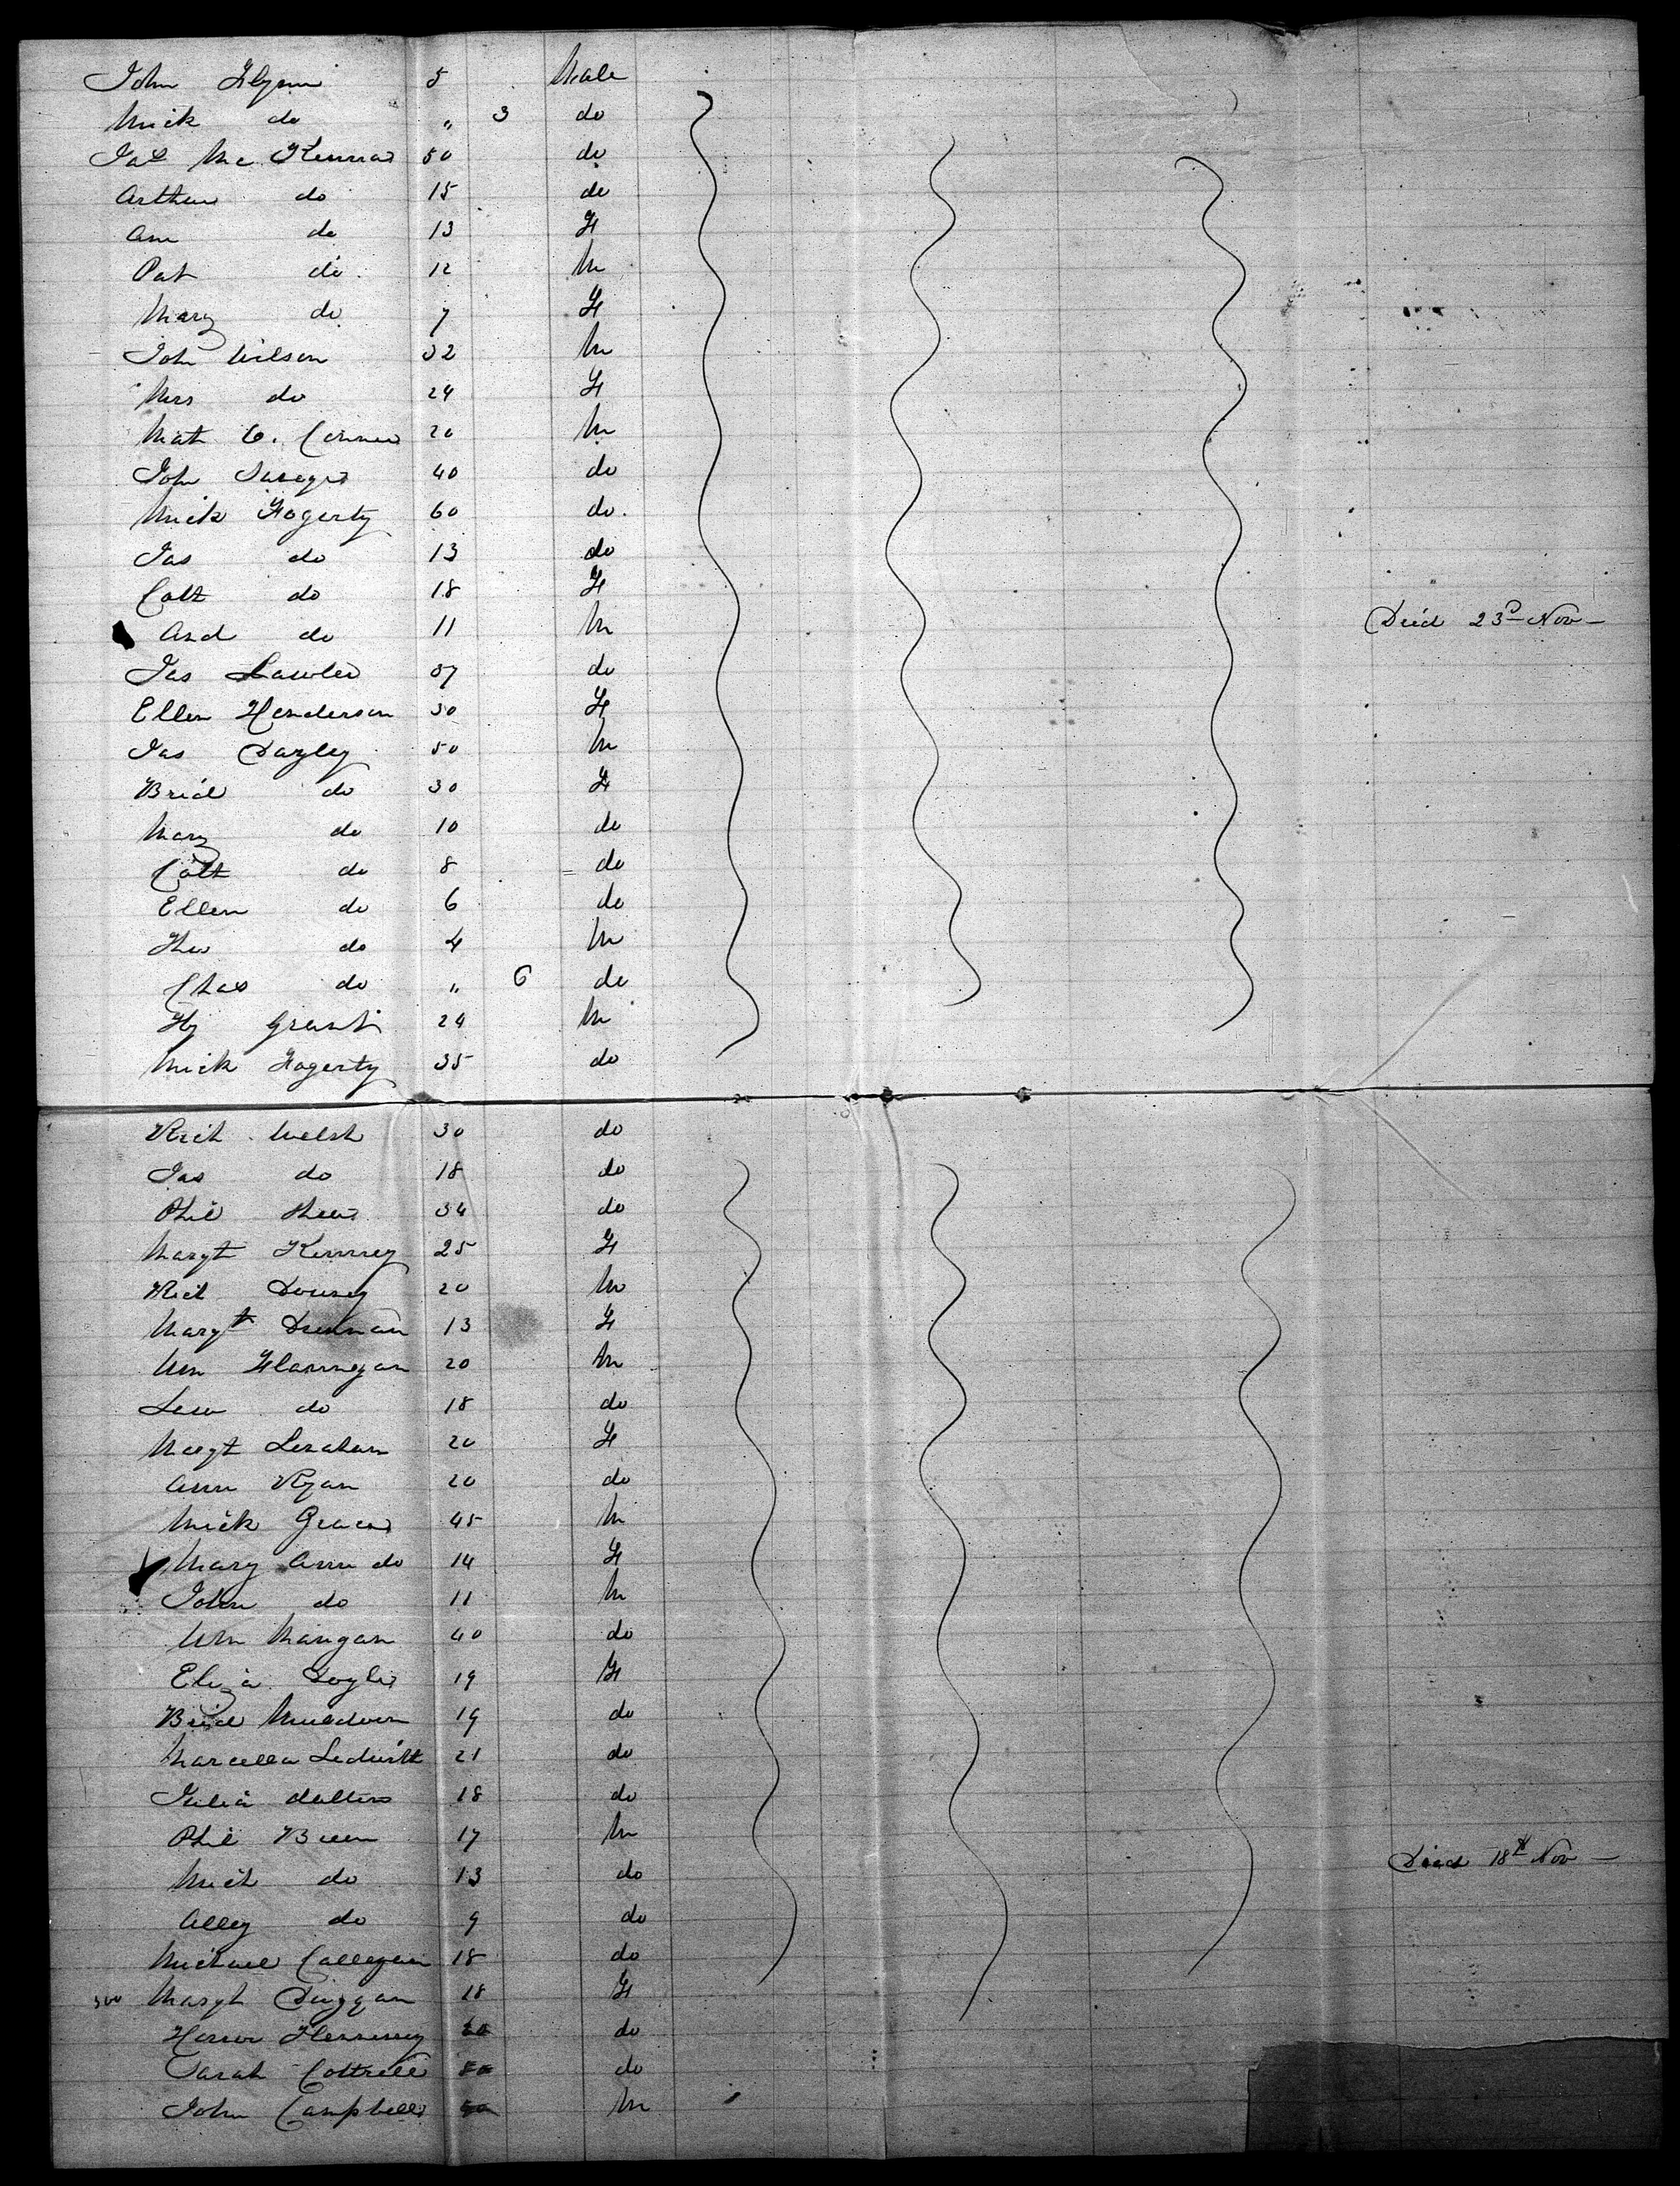 John Flynn 5 Male
Mick do " 3 do
Jas Mc Kenna 50 do
Arthur do 15 do
Ann do 13 F
Pat do 12 M
Mary do 7 F
John Wilson 32 M
Mrs do 24 F
Mat O. Conner 20 M
John Savage 40 do
Mick Fogerty 60 do.
Jas do 13 do
Cath do 18 F
And do 11 M Died 23d Nov —
Jas Lawler 37 do
Ellen Henderson 30 F
Jas Dayley 50 M
Brid do 30 F
Mary do 10 do
Cath do 8 do
Ellen do 6 do
Tho do 4 M
Chas do " 6 do
Hy Grant 24 M
Mick Fogerty 35 do
Rich Welsh 30 do
Jas do 18 do
Phil Shea 34 do
Margt Kenney 25 F
Rich 20 M
Margt Drennan 13 F
Wm Flannegan 20 M
Law do 18 do
Margt Lenahan 20 F
Ann Ryan 20 do
Mick Grace 45 M
Mary Ann do 14 F
John do 11 M
Wm Mangan 40 do
Eliza Doyle 19 F
Brid 19 do
Marcella Ledwith 21 do
Julia 18 do
Phil Breen 17 M
Mich do 13 do Died 18th Nov —
Alley do 9 do
Michael Callegan 18 do
300 Margt Duggan 18 F
Honor Hennessy do
Sarah Cottrell do
John Campbell M